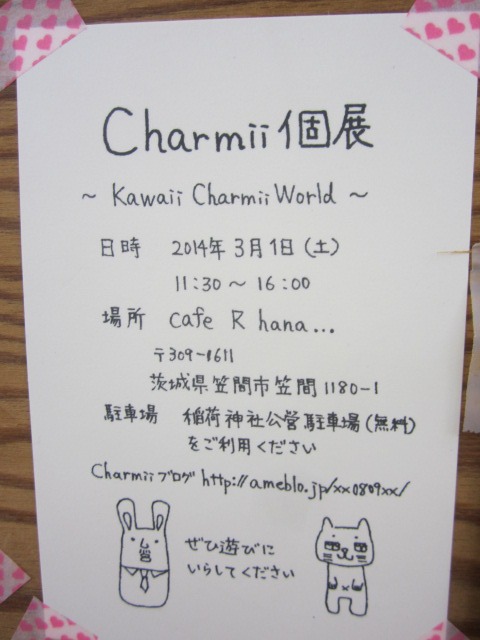 Charmii個展
～ Kawaii Charmii World ～
日時 2014年3月1日(土)
11:30～16:00
場所 cafe R hana...
〒309-1611
茨城県笠間市笠間1180-1
駐車場 稲荷神社公営駐車場(無料)
をご利用ください
Charmiiブログ http://ameblo.jp/xx0809xx/
ぜひ遊びに
いらしてください